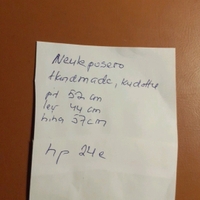 Neulepusero
Handmade, kudottu
pit 52 cm
lev 44 cm
hiha 57 cm
hp 24 e